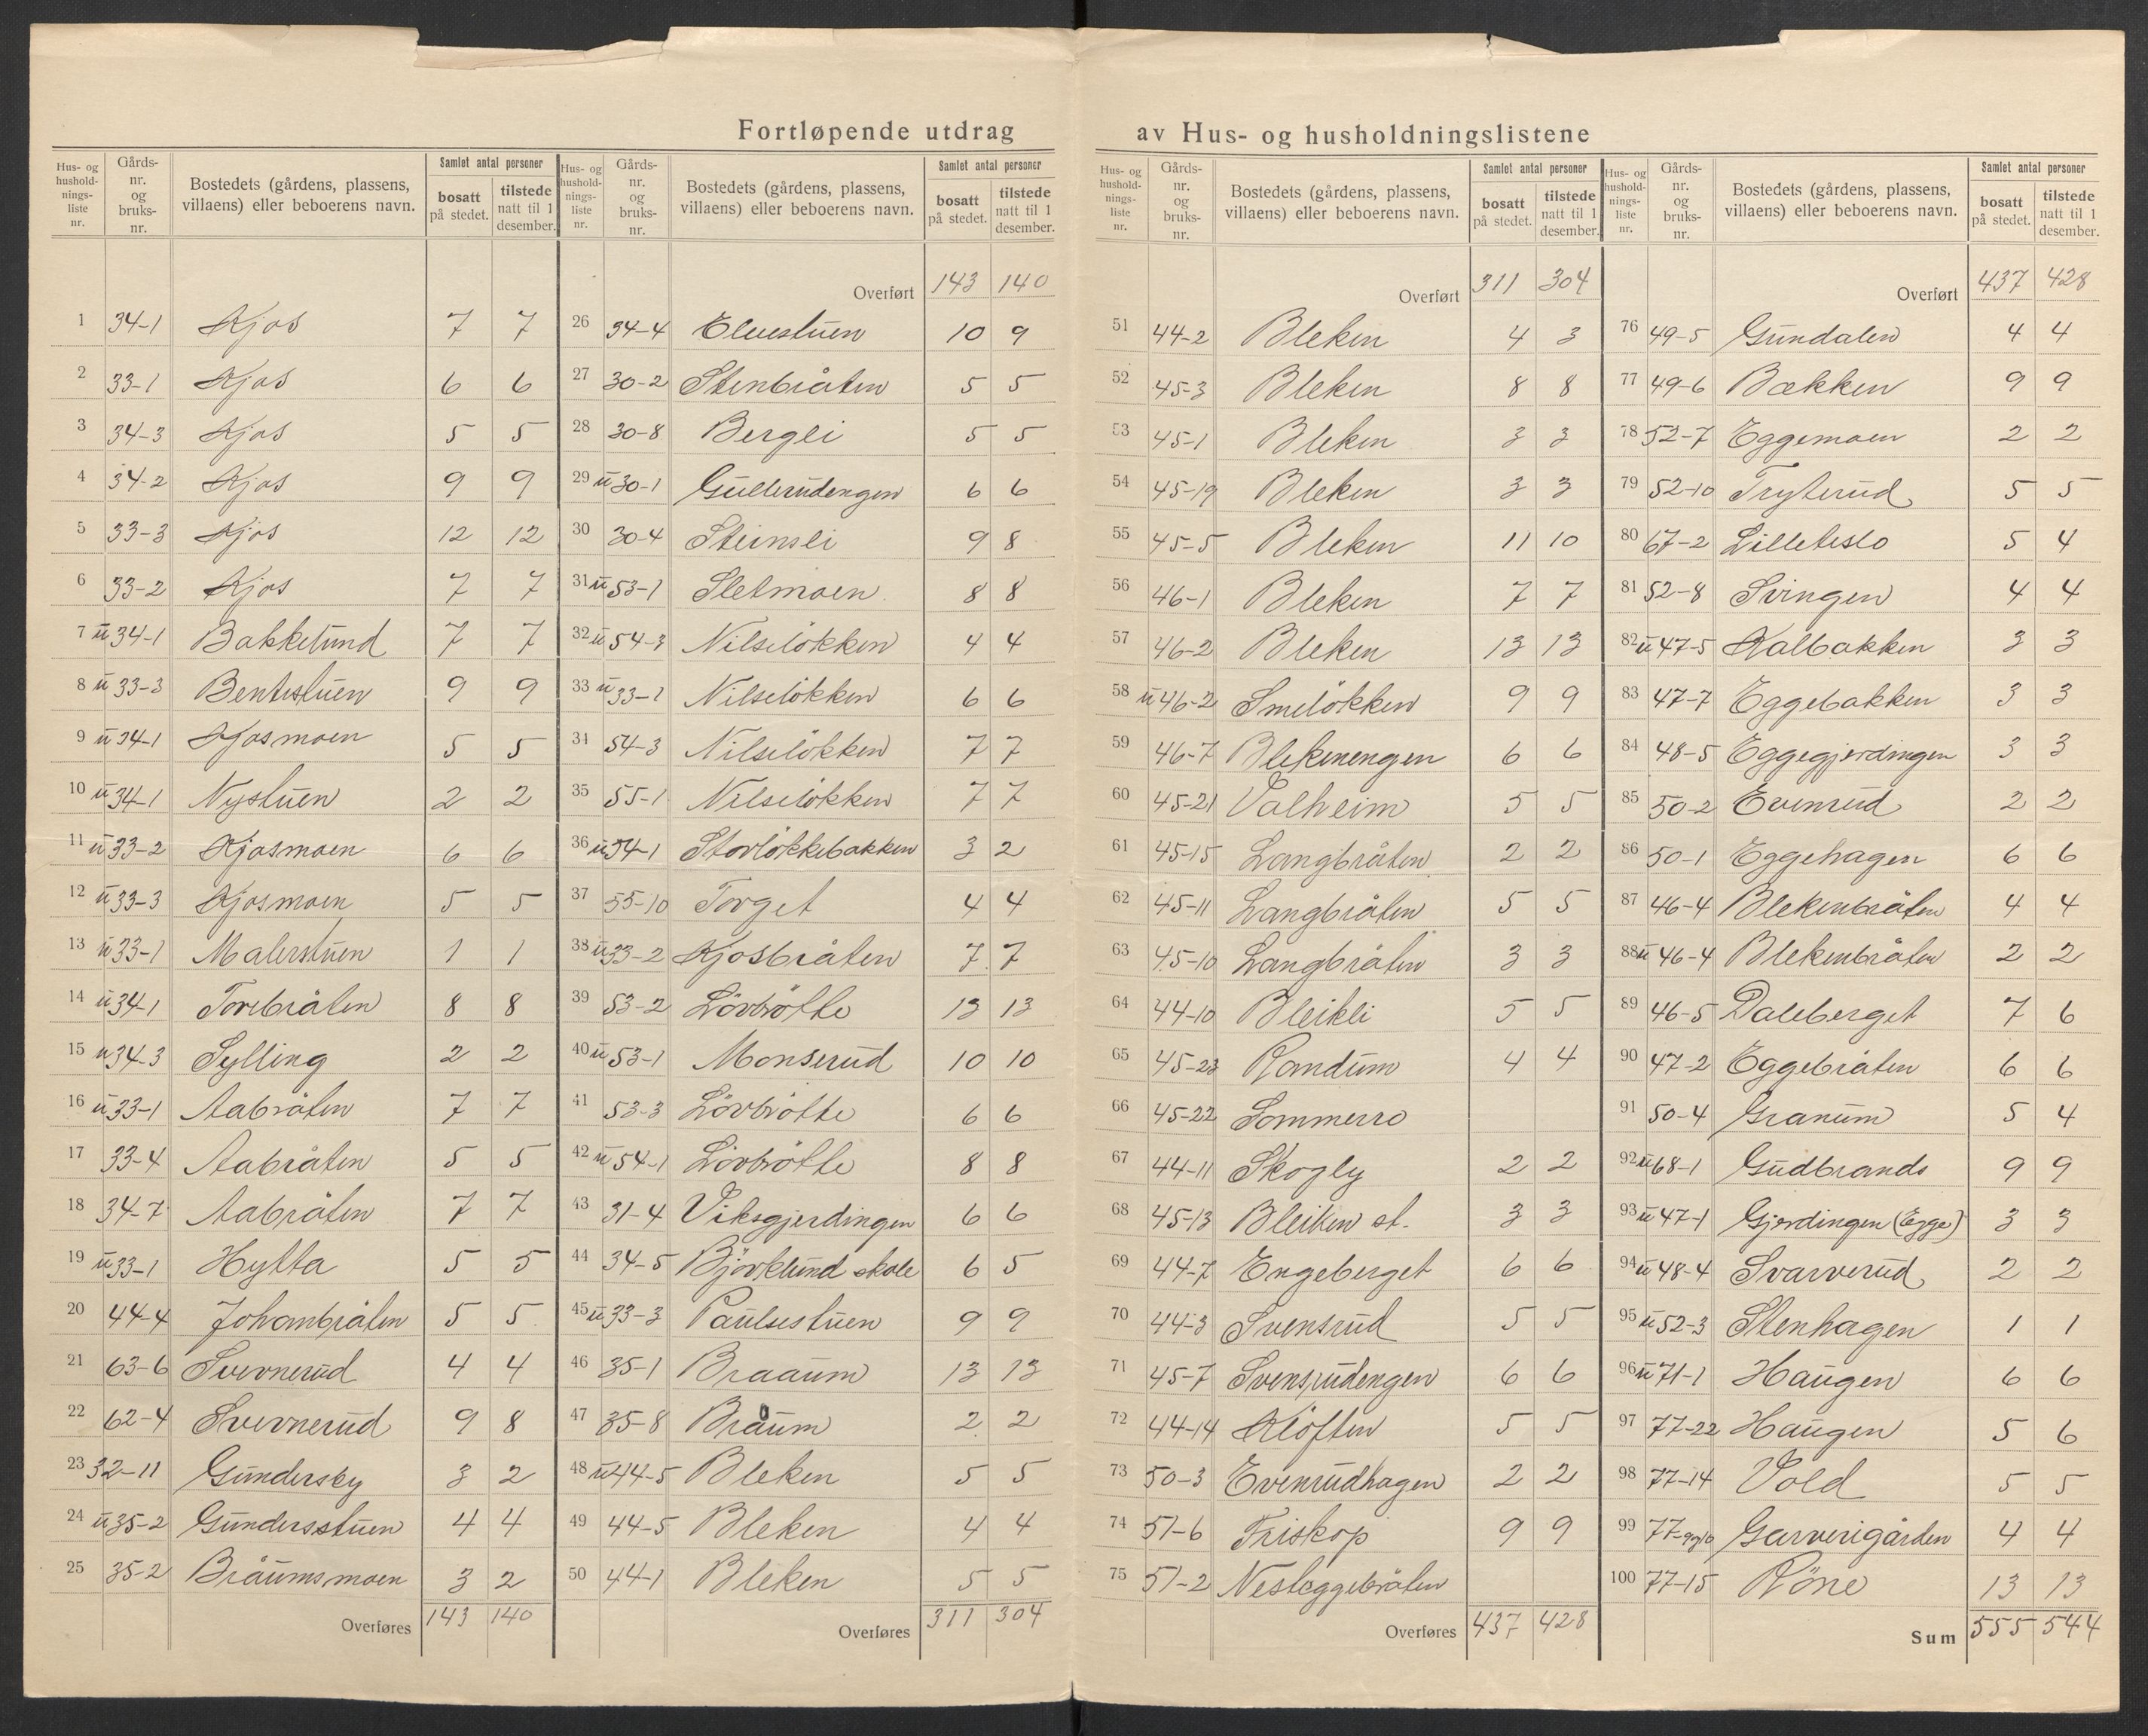 Fortløpende utdrag av Hus- og husholdningslistene
Hus- og husholdningsliste nr. Gårdsnr. og bruksnr. Bostedets (gårdens, plassens, villaens) eller beboerens navn. Samlet antal personer bosatt på stedet. tilstede natt til 1 desember.
1 34-1 Kjos 7 7
2 33-1 Kjos 6 6
3 34-3 Kjos 5 5
4 34-2 Kjos 9 9
5 33-3 Kjos 12 12
6 33-2 Kjos 7 7
7 u 34-1 Bakkelund 7 7
8 u 33-3 Bentestuen 9 9
9 u 34-1 Kjosmoen 5 5
10 u 34-1 Nystuen 2 2
11 u 33-2 Kjosmoen 6 6
12 u 33-3 Kjosmoen 5 5
13 u 33-1 Malerstuen 1 1
14 u 34-1 Torebråten 8 8
15 u 34-3 Sylling 2 2
16 u 33-1 Aabråten 7 7
17 33-4 Aabråten 5 5
18 34-7 Aabråten 7 7
19 u 33-1 Hytta 5 5
20 44-4 Johambråten 5 5
21 63-6 Svernerud 4 4
22 62-4 Svernerud 9 8
23 32-11 Gundersby 3 2
24 u 35-2 Gundersstuen 4 4
25 35-2 Bråumsmoen 3 2
Overføres 143 140
Hus- og husholdningsliste nr. Gårdsnr. og bruksnr. Bostedets (gårdens, plassens, villaens) eller beboerens navn. Samlet antal personer bosatt på stedet. tilstede natt til 1 desember.
Overført 143 140
26 34-4 Elvestuen 10 9
27 30-2 Stenbråten 5 5
28 30-8 Bergli 5 5
29 u 30-1 Gullerudengen 6 6
30 30-4 Steinsli 9 8
31 u 53-1 Sletmoen 8 8
32 u 54-3 Nilseløkken 4 4
33 u 33-1 Nilseløkken 6 6
34 54-3 Nilseløkken 7 7
35 55-1 Nilseløkken 7 7
36 u 34-1 Storløkkebakken 3 2
37 55-10 Torget 4 4
38 u 33-2 Kjosbråten 7 7
39 53-2 Lövbrötte 13 13
40 u 53-1 Monserud 10 10
41 53-3 Lövbrötte 6 6
42 u 54-1 Lövbrötte 8 8
43 31-4 Viksgjerdingen 6 6
44 34-5 Björklund skole 6 5
45 u 33-3 Paulsestuen 9 9
46 35-1 Braaum 13 13
47 35-8 Bråum 2 2
48 u 44-5 Bleken 5 5
49 44-5 Bleken 4 4
50 44-1 Bleken 5 5
Overføres 311 304
Hus- og husholdningsliste nr. Gårdsnr. og bruksnr. Bostedets (gårdens, plassens, villaens) eller beboerens navn. Samlet antal personer bosatt på stedet. tilstede natt til 1 desember.
Overført 311 304
51 44-2 Bleken 4 3
52 45-3 Bleken 8 8
53 45-1 Bleken 3 3
54 45-19 Bleken 3 3
55 45-5 Bleken 11 10
56 46-1 Bleken 7 7
57 46-2 Bleken 13 13
58 u 46-2 Smeløkken 9 9
59 46-7 Blekenengen 6 6
60 45-21 Valheim 5 5
61 45-15 Langbråten 2 2
62 45-11 Langbråten 5 5
63 45-10 Langbråten 3 3
64 44-10 Bleikli 5 5
65 45-23 Randum 4 4
66 45-22 Sommerro
67 44-11 Skogly 2 2
68 45-13 Bleiken st. 3 3
69 44-7 Engeberget 6 6
70 44-3 Svensrud 5 5
71 45-7 Svensrudengen 6 6
72 44-14 Kløften 5 5
73 50-3 Evenrudhagen 2 2
74 51-6 Friskop 9 9
75 51-2 Nesleggebråten
Overføres 437 428
Hus- og husholdningsliste nr. Gårdsnr. og bruksnr. Bostedets (gårdens, plassens, villaens) eller beboerens navn. Samlet antal personer bosatt på stedet. tilstede natt til 1 desember.
Overført 437 428
76 49-5 Gundalen 4 4
77 49-6 Bækken 9 9
78 52-7 Eggemoen 2 2
79 52-10 Tryterud 5 5
80 67-2 Lilleteslo 5 4
81 52-8 Svingen 4 4
82 u 47-5 Kalbakken 3 3
83 47-7 Eggebakken 3 3
84 48-5 Eggegjerdingen 3 3
85 50-2 Evenrud 2 2
86 50-1 Eggehagen 6 6
87 46-4 Blekenbråten 4 4
88 u 46-4 Blekenbråten 2 2
89 46-5 Daleberget 7 6
90 47-2 Eggebråten 6 6
91 50-4 Granum 5 4
92 u 68-1 Gudbrands 9 9
93 u 47-1 Gjerdingen (Egge) 3 3
94 u 48-4 Svarverud 2 2
95 u 52-3 Stenhagen 1 1
96 u 71-1 Haugen 6 6
97 77-22 Haugen 5 6
98 77-14 Vold 5 5
99 77- Garverigården 4 4
100 77-15 Röne 13 13
Sum 555 544